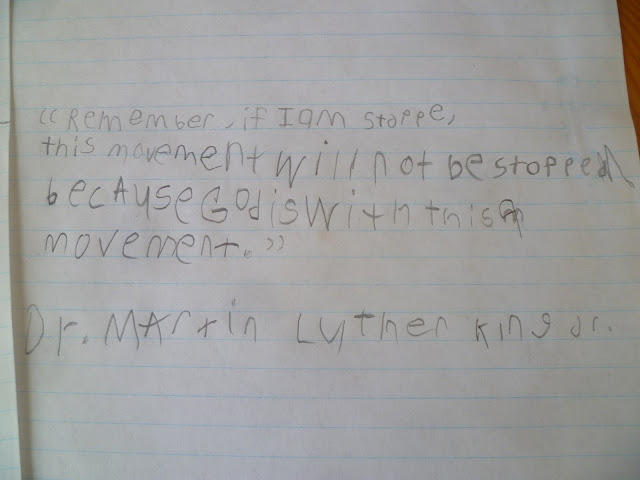 “Remember, if I am stoppe,
this movement will not be stopped
because God is with this
movement.”
Dr. Martin Luther King Jr.